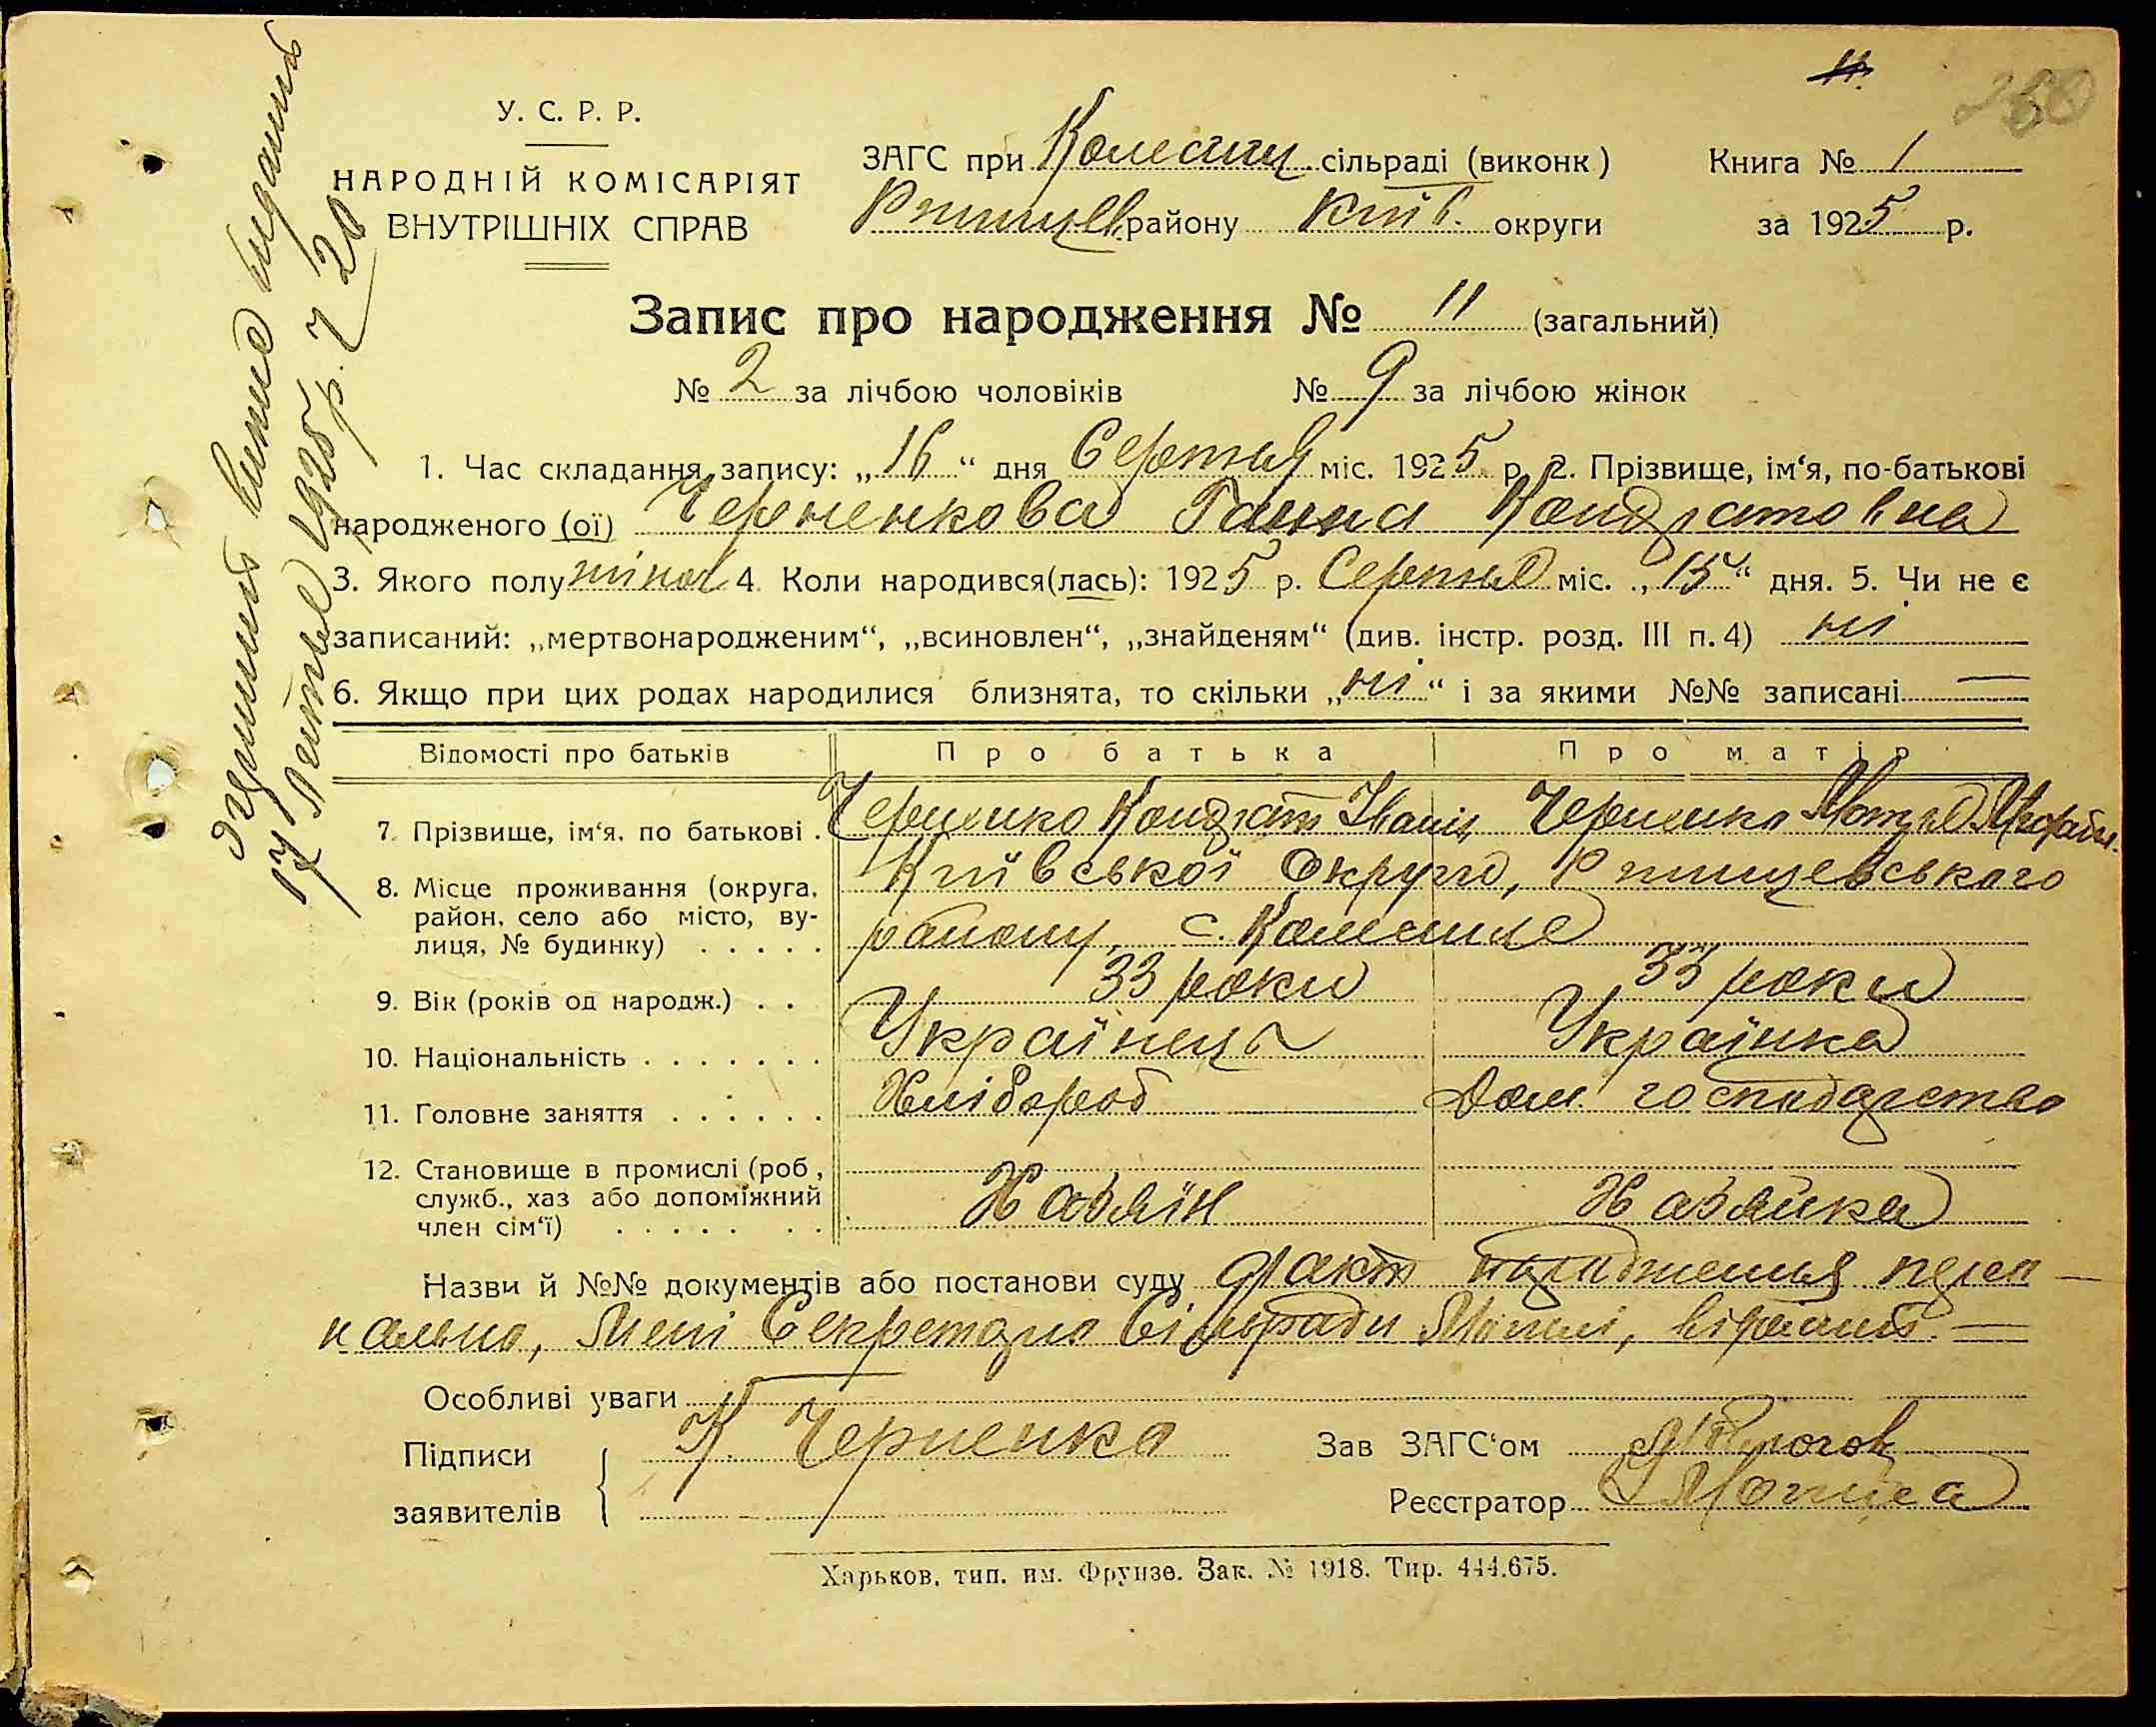 11.
У. С. Р. Р.
НАРОДНІЙ КОМІСАРІЯТ
ВНУТРІШНІХ СПРАВ
ЗАГС при сільраді (виконк)
району Київ. округи
Книга № 1
за 1925 р.
Запис про народження № 11 (загальний)
№ 2 за лічбою чоловіків № 9 за лічбою жінок
1. Час складання запису: „16“ дня Серпня міс. 1925 р. 2. Прізвище, ім‘я, по-батькові
народженого (ої) Черненкова Ганна Кондратовна
3. Якого полу жіноч 4. Коли народився(лась): 1925 р. Серпня міс. „15“ дня. 5. Чи не є
записаний: „мертвонародженим“, „всиновлен“, „знайденям“ (див. інстр. розд. III п. 4) ні
6. Якщо при цих родах народилися близнята, то скільки „ні“ і за якими №№ записані —
Відомості про батьків Про батька Про матір
7. Прізвище, ім‘я, по батькові . Черненко Кондрат Іванів Черненко Мотря
8. Місце проживання (округа, район, село або місто, ву-лиця, № будинку) . . . . . Київської Округи, Ржищевського
району, с.
9. Вік (років од народж.) . . 33 роки 33 роки
10. Національність . . . . . . . Українець Українка
11. Головне заняття . . . . . . Хлібороб Дом. господарство
12. Становище в промислі (роб.,
служб., хаз або допоміжний
член сім‘ї) . . . . . . . Хазяїн Хазяйка
Назви й №№ документів або постанови суду факт народження персо-
нально, мені Секретарю Сільради —
Особливі уваги
Підписи К. Черненко Зав ЗАГС‘ом
заявителів Реєстратор
Харьков, тип. им. Фрунзе. Зак. № 1918. Тир. 444.675.